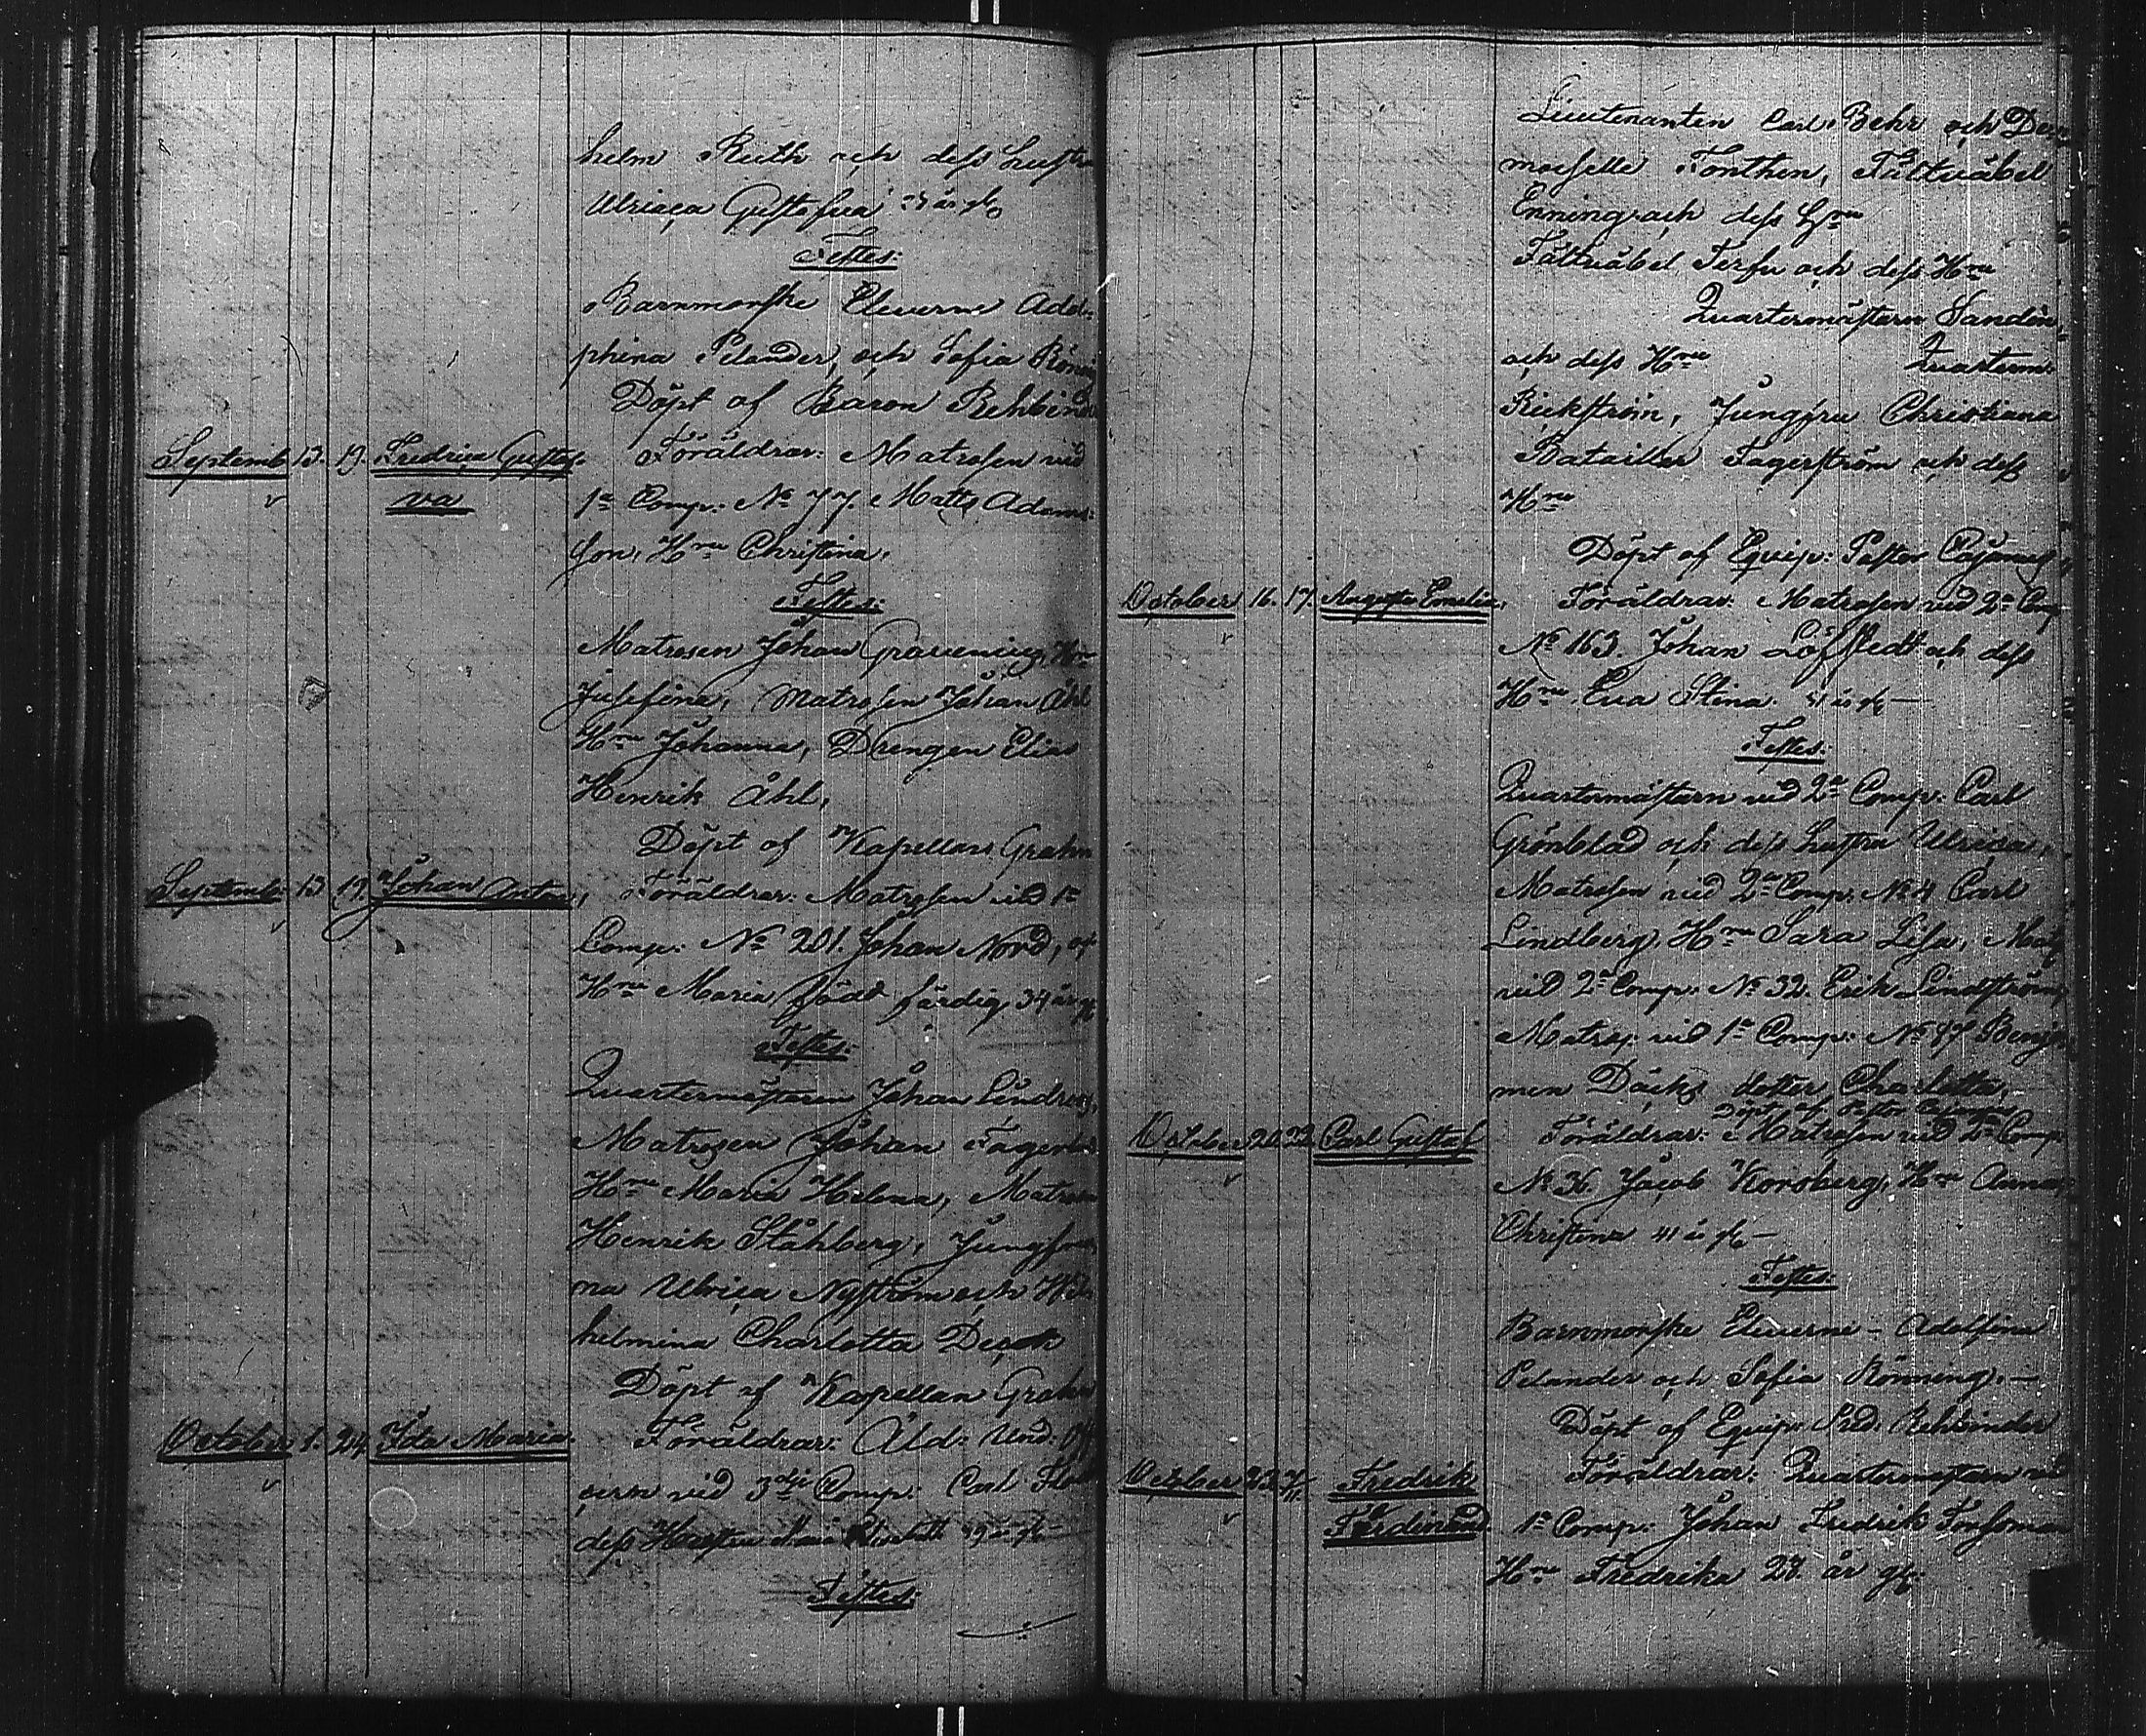 helm Reith och dess hustru
Ulrica Gustafva 25 år gl.
Testes:
Barnmorske Eleverne Adol-
phina Pelander, och Sofia Rönnig
Döpt af Baron Rehbinder
Septemb. 13. 19. Fredrica Gustaf- Föräldrar: Matrosen vid
va 1a Comp: No 77. Matts Adams-
son, Hru Christina,
Testes:
Matrosen Johan Hru
Josefina, Matrosen Johan Åhl
Hru Johanna, Drengen Elias
Henrik Åhl,
Döpt af Kapellan Grahn
Septemb: 13 19. Johan Anton, Föräldrar: Matrosen vid 1a
Comp: No 201. Johan Nord, och
Hru Maria född Färdig 34 år gl
Testes:
Quartermästaren Johan Lindroos,
Matrosen Johan
Hru Maria Helena, Matrosen
Henrik Ståhlberg, Jungfrur-
na Ulrica Nyström och Wil-
helmina Charlotta
Döpt af Kapellan Grahn
October 1. 24. Ida Maria Föräldrar: Äld: Und: Off
cirn vid 3dje Comp: Carl
dess Hustru Maria Elisabeth 39 år gl
Testes:
Lieutenanten Carl Behr och De-
moiselle Tonthen, Fältväbel
Enning och dess Hru
Fältväbel och dess Hru
Quartermästaren Sandin,
och dess Hru Quarterm:
Rickström, Jungfru Christiana
Fagerström och dess
Hru
Döpt af Equip: Pastor Cajanus
October 16. 17. Augusta Emelia, Föräldrar: Matrosen vid 2a Comp
No 163. Johan Löfstedt och dess
Hru Eva Stina. 31 år gl —
Testes:
Quartermästarn vid 2a Comp: Carl
Grönblad och dess hustru Ulrica,
Matrosen vid 2a Comp: No 4 Carl
Lindberg, Hru Sara Lisa, Matr
vid 2a Comp: No 32. Erik Lindström,
Matros: vid 1a Comp: No 87 Benja-
min Däcks dotter Charlotta,
Döpt af Pastor Cajanus
October 20. 22. Carl Gustaf Föräldrar: Matrosen vid 2a Comp
No 36. Jacob Korsberg, Hru Anna
Christina 41 år gl —
Testes:
Barnmorske Eleverne — Adolfina
Pelander och Sofia Rönning. —
Döpt af Equip: Pred. Rehbinder
October 23. Fredrik Föräldrar: Quartermästarn vid
Ferdinand. 1a Comp: Johan Fredrik Forsman
Hru Fredrika 28. år gl: